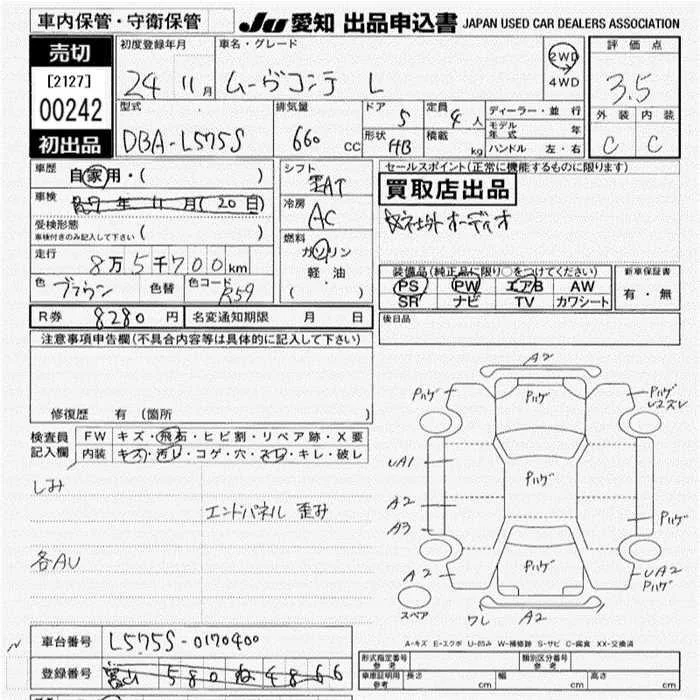 車内保管・守衛保管
Ju 愛知 出品申込書 JAPAN USED CAR DEALERS ASSOCIATION
売切
[2127]
00242
初出品
初度登録年月
24 11月
車名・グレード
ムーヴコンテ L
2WD
4WD
評価点
3.5
型式
DBA-L575S
排気量
660 CC
ドア
5
定員
4人
形状
HB
積載
kg
ディーラー・並行
モデル年式 年
ハンドル 左・右
外装 内装
C C
車歴
自家用・( )
車検
R7年11月(20日)
受検形態
車検付きのみ記入して下さい ( )
走行
8万5千700km
色
ブラウン
色替
色コード
R59
シフト
AT
冷房
AC
燃料
ガソリン
軽油
( )
セールスポイント(正常に機能するものに限ります)
買取店出品
オーディオ
装備品(純正品に限り○をつけてください)
PS PW エアB AW
SR ナビ TV カワシート
新車保証書
有・無
R券 8280円 名変通知期限 月 日
後日品
注意事項申告欄(不具合内容等は具体的に記入して下さい)
修復歴 有 (箇所 )
検査員記入欄
FW キズ・飛石・ヒビ割・リペア跡・X要
内装 キズ・汚レ・コゲ・穴・スレ・キレ・破レ
しみ
エンドパネル 歪み
各AU
A2
ハゲ
ハゲ
ハゲ
U2ズレ
UA1
ハゲ
A2
A3
ハゲ
A2
ハゲ
UA2
ハゲ
スペア
ワレ
A2
A-キズ E-エクボ U-凹み W-補修跡 S-サビ C-腐食 XX-交換済
車台番号 L575S-0170400
登録番号 富山 580 ね 4866
形式指定番号
参考
類別区分番号
参考
車庫証明用
参考
長さ cm
幅 cm
高さ cm